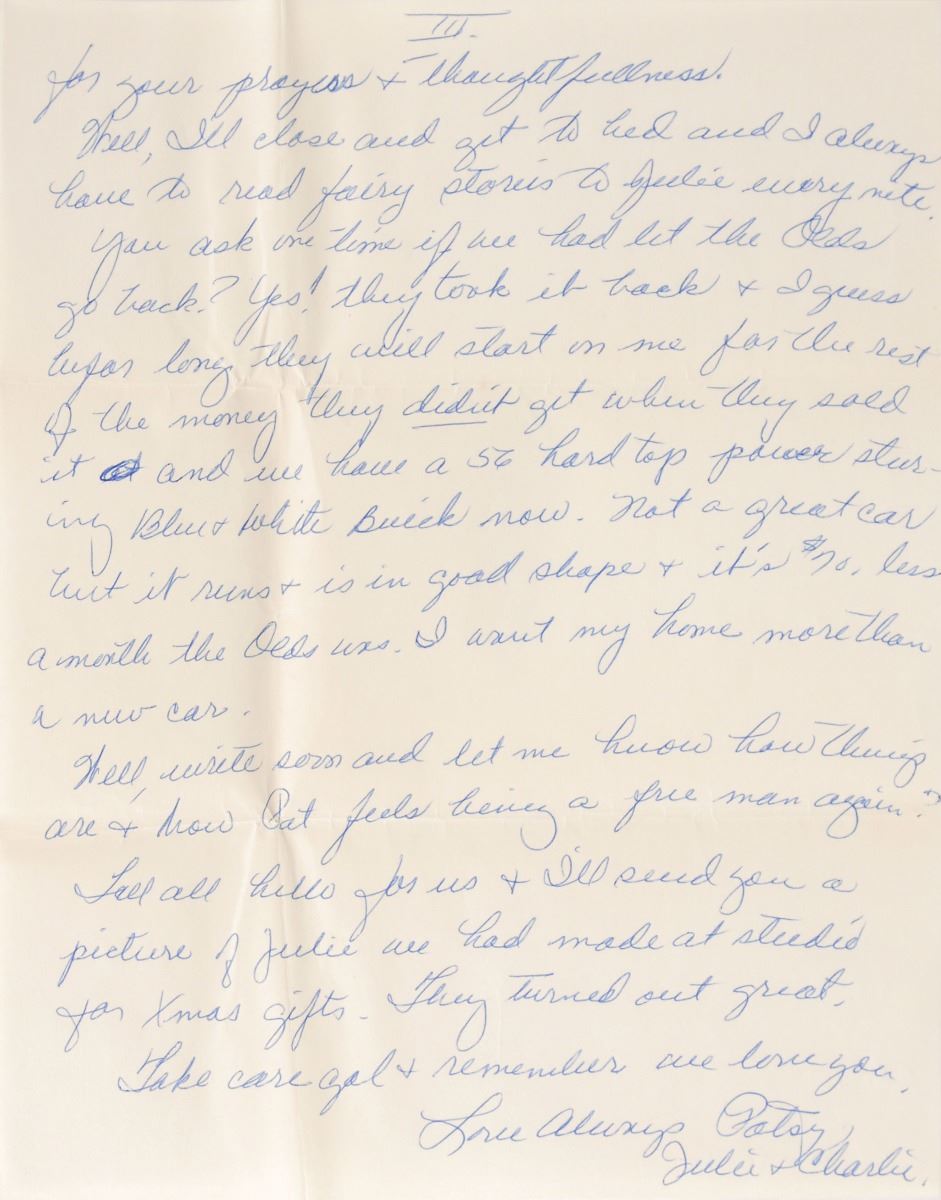 III.
for your prayers & thoughtfullness.
Well, I'll close and get to bed and I always
have to read fairy stories to Julie every nite.
You ask one time if we had let the Olds
go back? Yes! they took it back & I guess
befor long they will start on me for the rest
of the money they didn't get when they sold
it and we have a 56 hard top power stur-
ing Blue & White Buick now. Not a great car
but it runs & is in good shape & it's $70. less
a month the Olds was. I want my home more than
a new car.
Well, write soon and let me know how things
are & how Pat feels being a free man again?
Tell all hello for us & I'll send you a
picture of Julie we had made at studio
for Xmas gifts. They turned out great.
Take care gal & remember we love you.
Love Always Patsy,
Julie & Charlie.